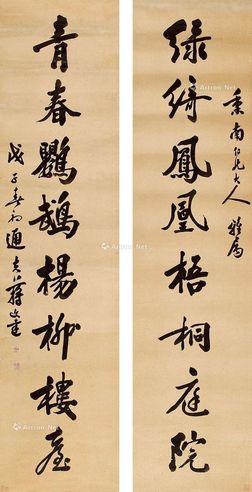 秉南仁兄大人雅屬
綠綺鳳凰梧桐庭院
青春鸚鵡楊柳樓臺
戊子春初通
Artron.Net
Artron.Net